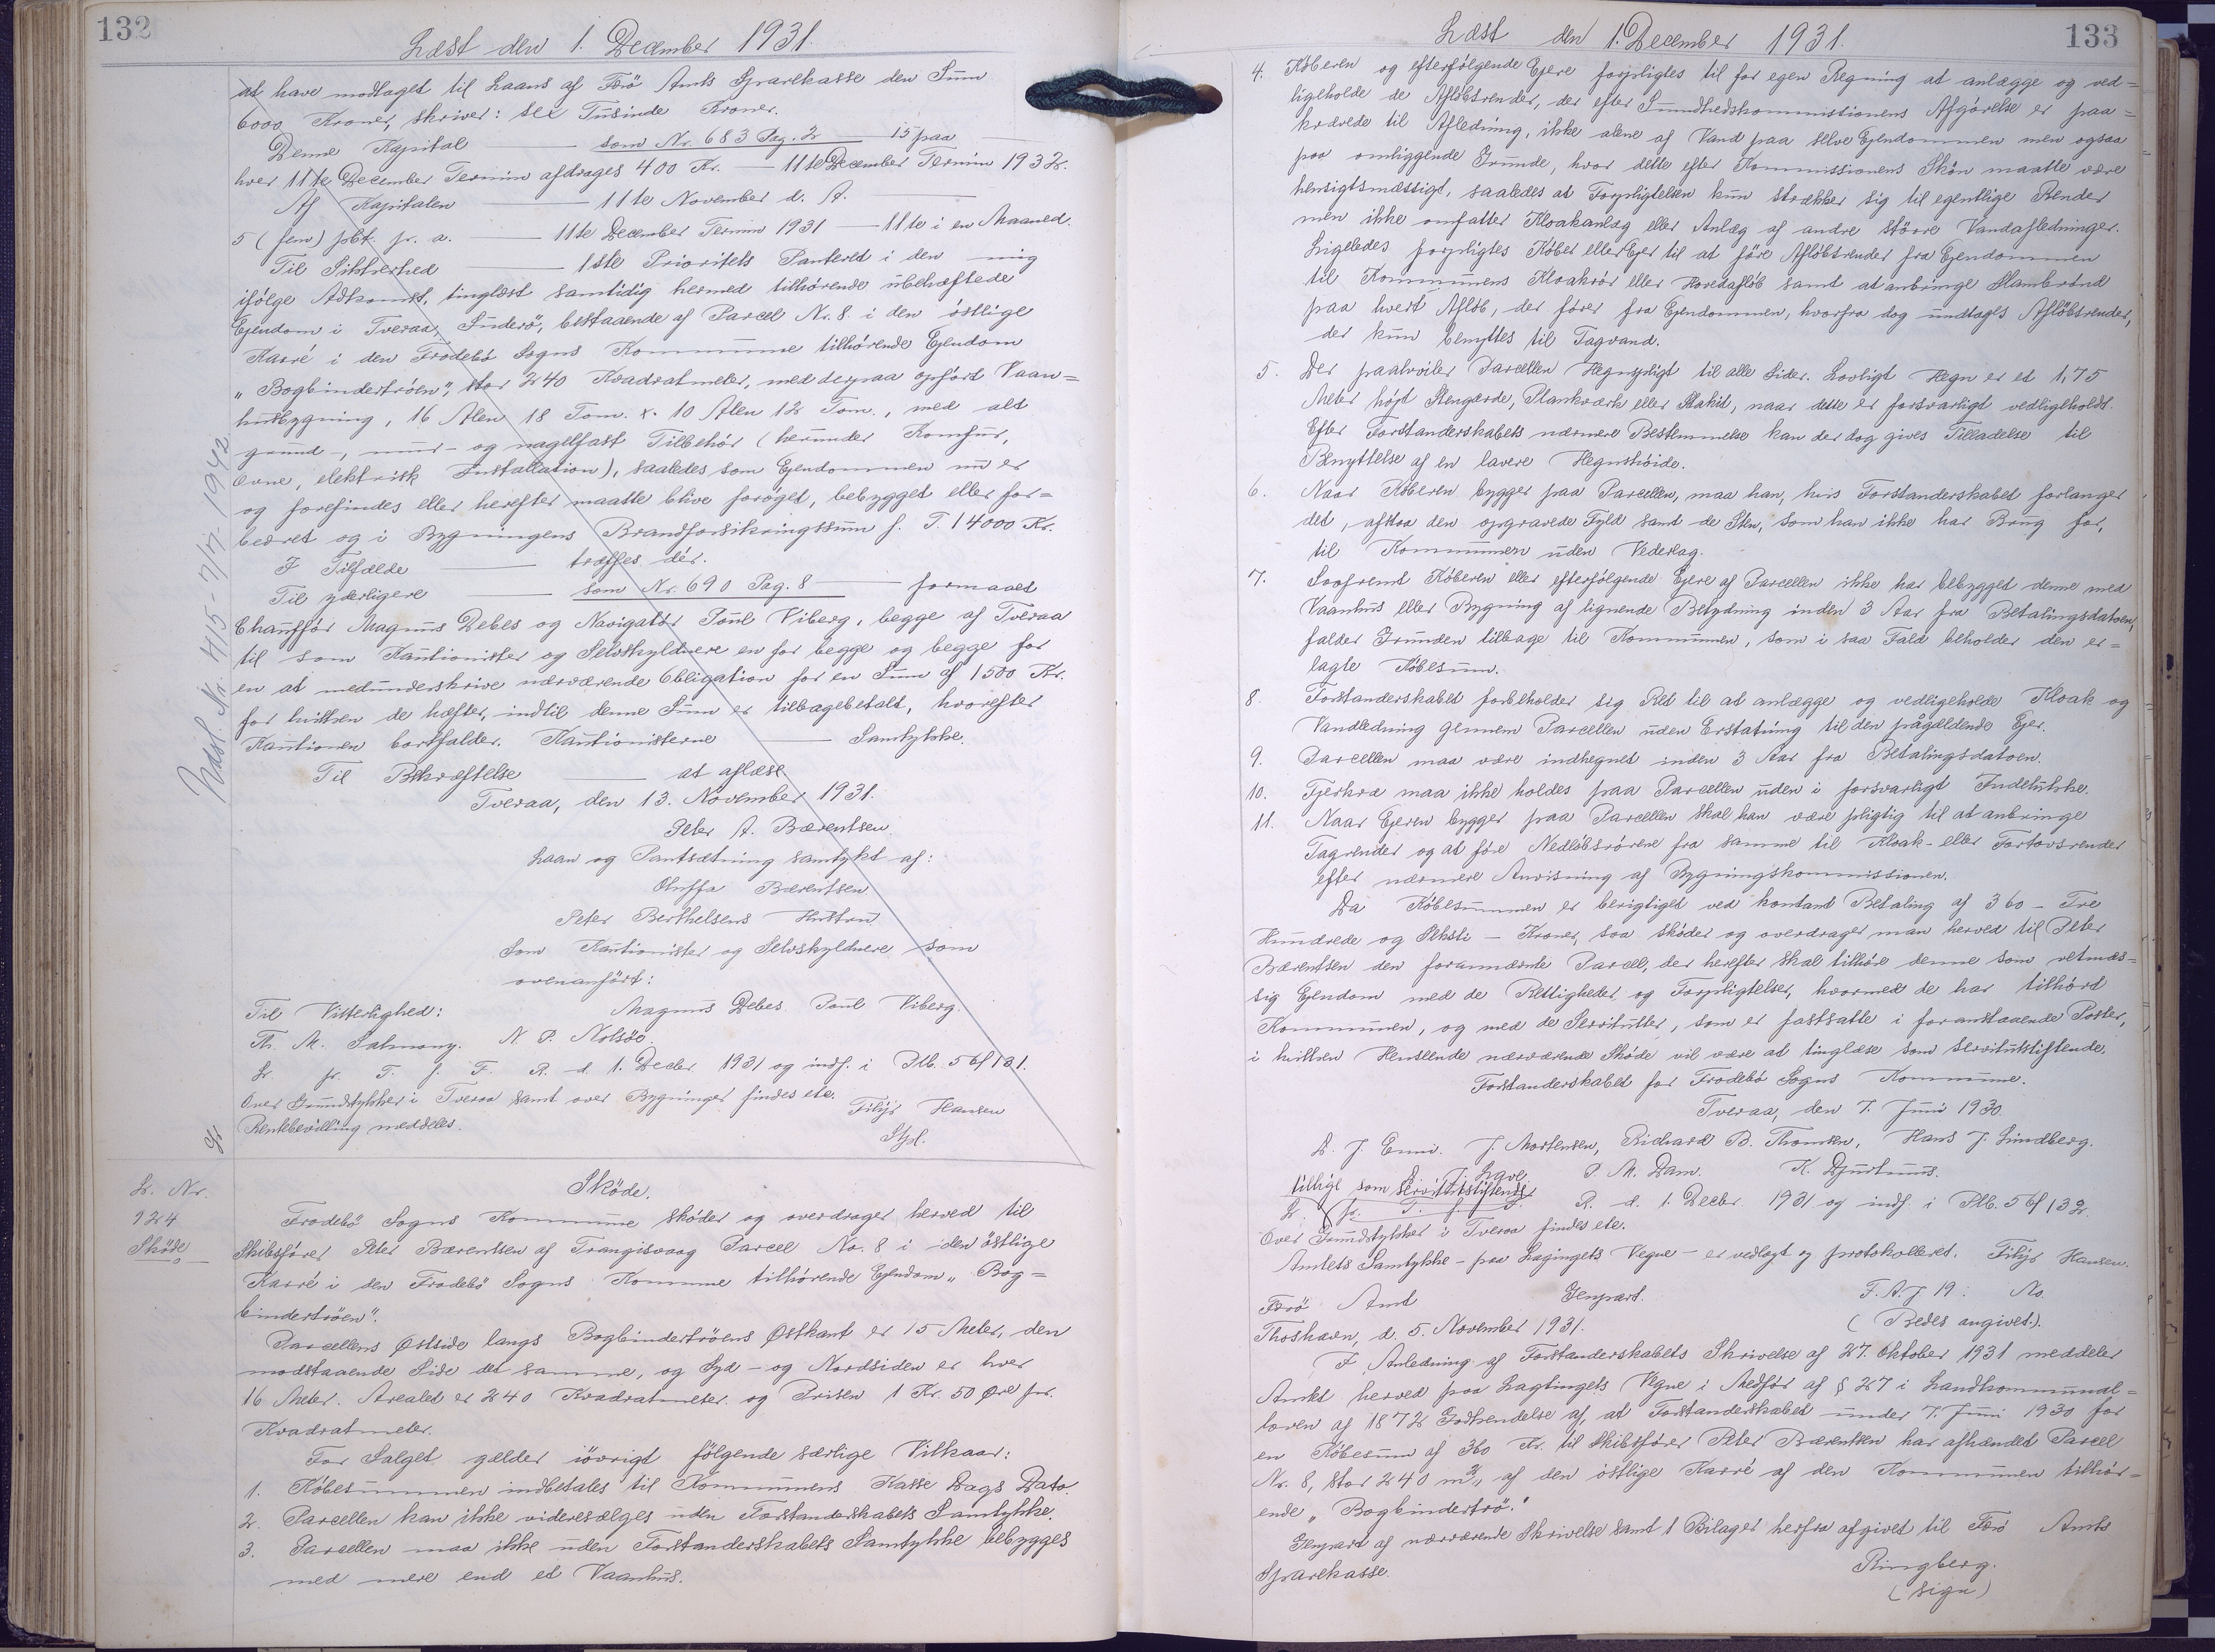 132
Læst den 1. December 1931.
at have modtaget til Laans af Færö Amts Sparekasse den Sum
6000 Kroner, skriver: sex Tusinde Kroner.
Denne Kapital — som Nr. 683 Pag. 2 — 15 paa —
hver 11te December Termin afdrages 400 Kr. — 11te December Termin 1932.
Af Kapitalen — 11te November d. A.
5 (fem) pCt. pr. a. — 11te December Termin 1931 — 11te i en Maaned.
Til Sikkerhed — 1ste Prioritets Panteret i den mig
ifølge Adkomst, tinglæst samtidig hermed tilhørende übehæftede
Ejendom i Tveraa, Suderö, bestaaende af Parcel Nr. 8 i den östlige
Karré i den Frodebö Sogns Kommune tilhörende Ejendom
„Bogbindertröen", stor 240 Kvadratmeter, med derpaa opfört Vaan=
husbygning, 16 Alen 18 Tom. x. 10 Alen 12 Tom., med alt
grund-, mur- og nagelfast Tilbehör (herunder Komfur,
ovne, elektrisk Installation), saaledes som Ejendommen nu er
og forefindes eller herefter maatte blive forøget, bebygget eller for=
bedret og i Bygningens Brandforsikringssum f. T. 14000 Kr.
I Tilfælde — træffes dér.
Til yderligere — som Nr. 690 Pag. 8 — formaaet
Chaufför Magnus Debes og Navigatör Poul Viberg, begge af Tveraa
til som Kautionister og Selvskyldnere en for begge og begge for
en at medunderskrive nærværende Obligation for en Sum af 1500 Kr.
for hvilken de hæfter, indtil denne Sum er tilbagebetalt, hvorefter
Kautionen bortfalder. Kautionisterne — Samtykke.
Til Bekræftelse — at aflæse
Tveraa, den 13. November 1931.
Peter A. Bærentsen
Laan og Pantsætning samtykt af:
Oluffa Bærentsen
Peter Berthelsens Hustru
Som Kautionister og Selvskyldnere som
ovenanfört:
Til Vitterlighed: Magnus Debes Poul Viberg.
Th. M. Salmony. N. P. Nolsöe.
L. pr. T. f. F. R. d. 1. Decbr 1931 og indf. i Plb. 5 bf 131.
Over Grundstykker i Tveraa samt over Bygninger findes etc.
Rentebevilling meddeles. Filijs Hansen
Stpl.
Udsl. Nr. 415 - 7/7 - 1942
L. Nr.
924
Sköde
Sköde.
Frodebö Sogns Kommune sköder og overdrager herved til
Skibsfører Peter Bærentsen af Trangisvaag Parcel No. 8 i den östlige
Karré i den Frodebö Sogns Kommune tilhörende Ejendom „Bog=
bindertröen".
Parcellens Østside langs Bogbindertröens Østkant er 15 Meter, den
modstaaende Side det samme, og Syd- og Nordsiden er hver
16 Meter. Arealet er 240 Kvadratmeter og Prisen 1 Kr. 50 Øre pr.
Kvadratmeter.
For Salget gælder iövrigt fölgende særlige Vilkaar:
1. Købesummen indbetales til Kommunens Kasse Dags Dato.
2. Parcellen kan ikke videresælges uden Forstanderskabets Samtykke.
3. Parcellen maa ikke uden Forstanderskabets Samtykke bebygges
med mere end et Vaanhus.
133
Læst den 1. December 1931.
4. Køberen og efterfølgende Ejere forpligtes til for egen Regning at anlægge og ved=
ligeholde de Afløbsrender, der efter Sundhedskommissionens Afgørelse er paa=
krævede til Afledning, ikke alene af Vand paa selve Ejendommen men ogsaa
paa omliggende Grunde, hvor dette efter Kommissionens Skøn maatte være
hensigtsmæssigt, saaledes at Forpligtelsen kun strækker sig til egentlige Render
men ikke omfatter Kloakanlæg eller Anlæg af andre större Vandafledninger.
Ligeledes forpligtes Køber eller Ejer til at före Afløbsrender fra Ejendommen
til Kommunens Kloakrör eller Hovedafløb samt at anbringe Slambrønd
paa hvert Afløb, der fører fra Ejendommen, hvorfra dog undtages Afløbsrender,
der kun benyttes til Tagvand.
5. Der paahviler Parcellen Hegnspligt til alle Sider. Lovligt Hegn er et 1,75
Meter højt Stengærde, Plankværk eller Stakit, naar dette er forsvarligt vedligeholdt.
Efter Forstanderskabets nærmere Bestemmelse kan der dog gives Tilladelse til
Benyttelse af en lavere Hegnshöide.
6. Naar Køberen bygger paa Parcellen, maa han, hvis Forstanderskabet forlanger
det, afstaa den opgravede Fyld samt de Sten, som han ikke har Brug for,
til Kommunen uden Vederlag.
7. Saafremt Køberen eller efterfølgende Ejere af Parcellen ikke har bebygget denne med
Vaanhus eller Bygning af lignende Betydning inden 3 Aar fra Betalingsdatoen,
falder Grunden tilbage til Kommunen, som i saa Fald beholder den er=
lagte Købesum.
8. Forstanderskabet forbeholder sig Ret til at anlægge og vedligeholde Kloak og
Vandledning gennem Parcellen uden Erstatning til den pågældende Ejer.
9. Parcellen maa være indhegnet inden 3 Aar fra Betalingsdatoen.
10. Fjerkræ maa ikke holdes paa Parcellen uden i forsvarligt Indelukke.
11. Naar Ejeren bygger paa Parcellen skal han være pligtig til at anbringe
Tagrender og at före Nedløbsrörene fra samme til Kloak- eller Fortovsrender
efter nærmere Anvisning af Bygningskommissionen.
Da Købesummen er berigtiget ved kontant Betaling af 360 - Tre
Hundrede og Seksti - Kroner, saa sköder og overdrager man herved til Peter
Bærentsen den forannævnte Parcel, der herefter skal tilhöre denne som retmæs=
sig Ejendom med de Rettigheder og Forpligtelser, hvormed de har tilhört
Kommunen, og med de Servitutter, som er fastsatte i foranstaaende Poster,
i hvilken Henseende nærværende Sköde vil være at tinglæse som servitutstiftende.
Forstanderskabet for Frodebö Sogns Kommune.
Tveraa, den 7. Juni 1930.
D. J. Enni. J. Mortensen, Richard B. Thomsen, Hans J. Lindberg.
P. M. Dam. K. Djurhuus.
tillige som servitutstiftende
L. pr. T. f. F. R. d. 1. Decbr 1931 og indf. i Plb. 5 bf 132.
Over Grundstykker i Tveraa findes etc.
Amtets Samtykke - paa Lagtingets Vegne - er vedlagt og protokolleret. Filijs Hansen.
Færö Amt Genpart. F. A. J 19: No.
Thorshavn, d. 5. November 1931. (Bedes angivet.).
I Anledning af Forstanderskabets Skrivelse af 27. Oktober 1931 meddeler
Amtet herved paa Lagtingets Vegne i Medför af § 27 i Landkommunal=
loven af 1872 Godkendelse af, at Forstanderskabet under 7. Juni 1930 for
en Købesum af 360 Kr. til Skibsfører Peter Bærentsen har afhændet Parcel
Nr. 8, stor 240 m², af den östlige Karré af den Kommunen tilhör=
ende „Bogbindertrö."
Genpart af nærværende Skrivelse samt 1 Bilaget herfra afgivet til Færö Amts
Sparekasse. Ringberg.
(sign)